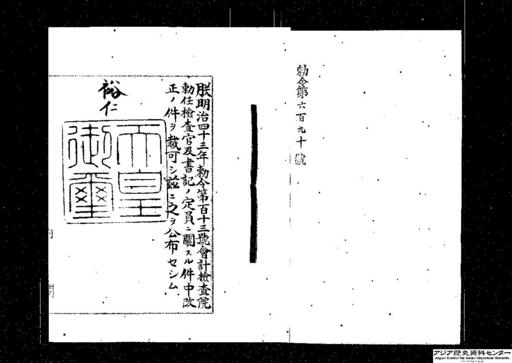 勅令第六百九十號
朕明治四十三年勅令第百十三號會計檢査院
勅任檢査官及書記ノ定員ニ關スル件中改
正ノ件ヲ裁可シ茲ニ之ヲ公布セシム
裕仁
天皇
御璽
内閣
アジア歴史資料センター
Japan Center for Asian Historical Records